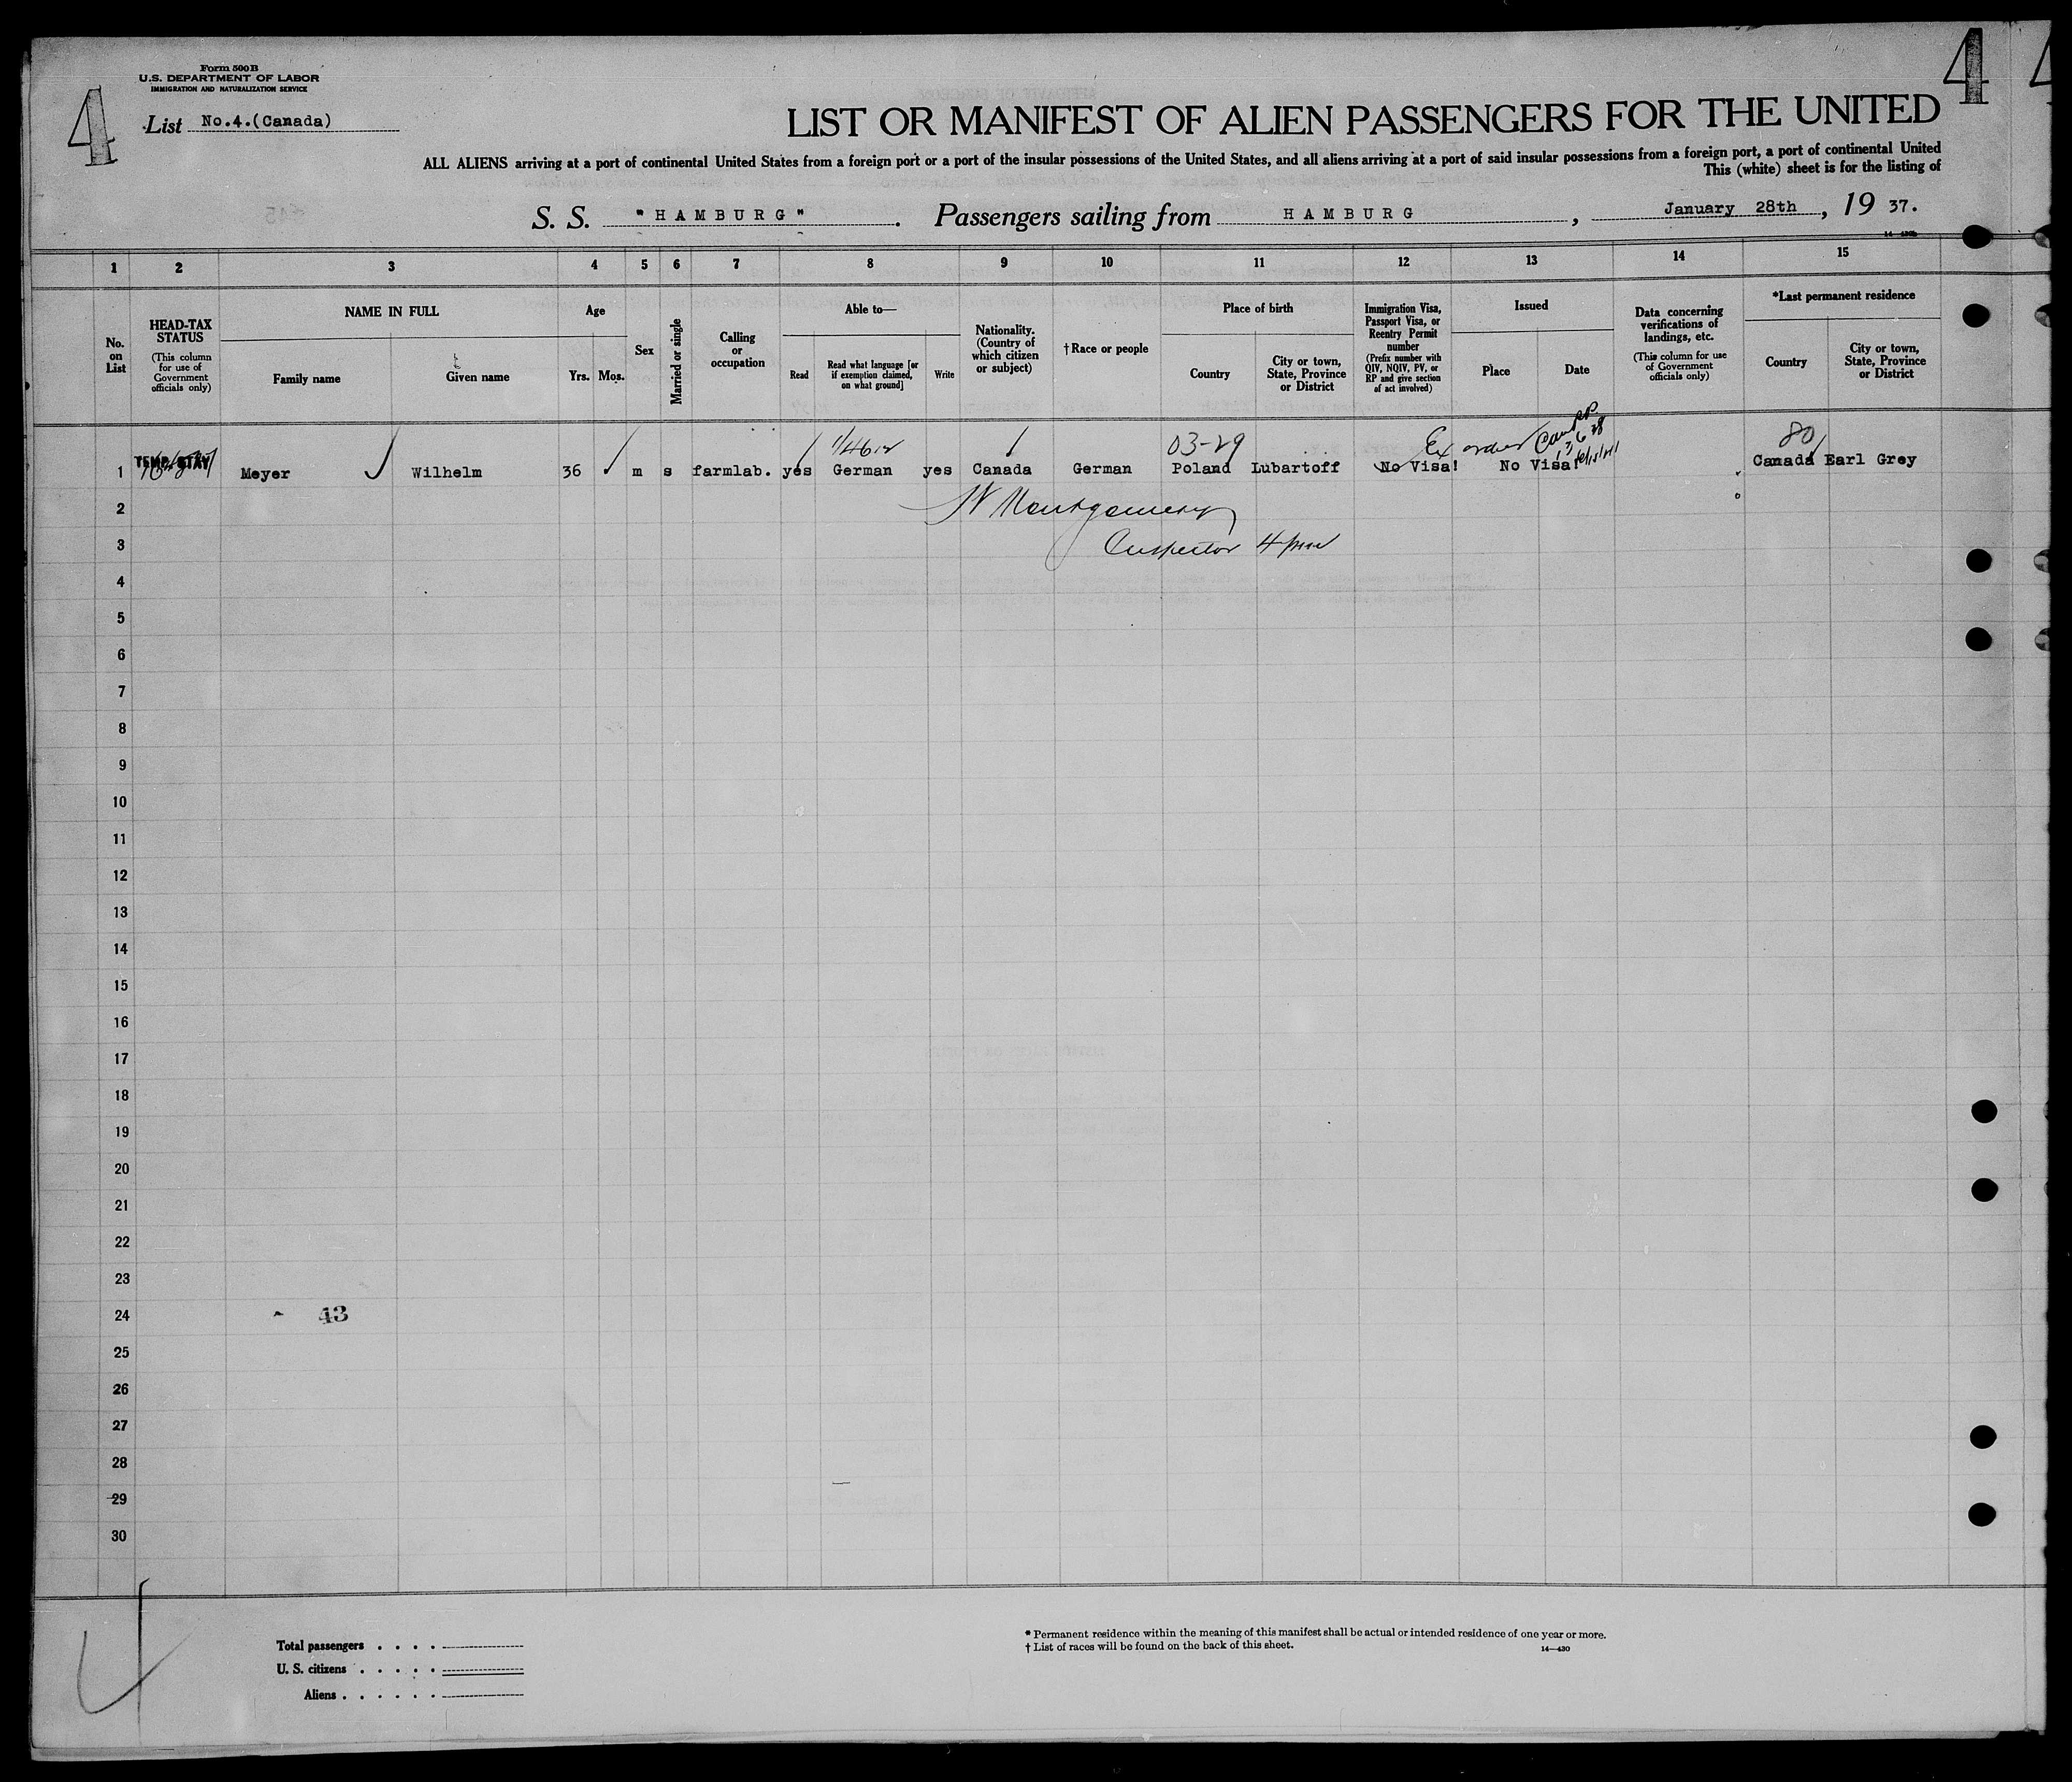 4
4
Form 500B
U.S. DEPARTMENT OF LABOR
IMMIGRATION AND NATURALIZATION SERVICE
List No.4.(Canada)
LIST OR MANIFEST OF ALIEN PASSENGERS FOR THE UNITED
ALL ALIENS arriving at a port of continental United States from a foreign port or a port of the insular possessions of the United States, and all aliens arriving at a port of said insular possessions from a foreign port, a port of continental United
This (white) sheet is for the listing of
S. S. "HAMBURG". Passengers sailing from HAMBURG, January 28th, 1937.
1 2 3 4 5 6 7 8 9 10 11 12 13 14 15
No. on List
HEAD-TAX STATUS
(This column for use of Government officials only)
NAME IN FULL
Family name
Given name
Age
Yrs. Mos.
Sex
Married or single
Calling or occupation
Able to—
Read
Read what language [or if exemption claimed, on what ground]
Write
Nationality. (Country of which citizen or subject)
†Race or people
Place of birth
Country
City or town, State, Province or District
Immigration Visa, Passport Visa, or Reentry Permit number
(Prefix number with QIV, NQIV, PV, or RP and give section of act involved)
Issued
Place
Date
Data concerning verifications of landings, etc.
(This column for use of Government officials only)
*Last permanent residence
Country
City or town, State, Province or District
03-29
Ex order
80
1 TEMP. STAY Meyer Wilhelm 36 m s farmlab. yes German yes Canada German Poland Lubartoff No Visa! No Visa! Canada Earl Grey
2 Montgomery
3 Inspector
4
5
6
7
8
9
10
11
12
13
14
15
16
17
18
19
20
21
22
23
24 43
25
26
27
28
29
30
4
Total passengers
U. S. citizens
Aliens
* Permanent residence within the meaning of this manifest shall be actual or intended residence of one year or more.
† List of races will be found on the back of this sheet. 14—430